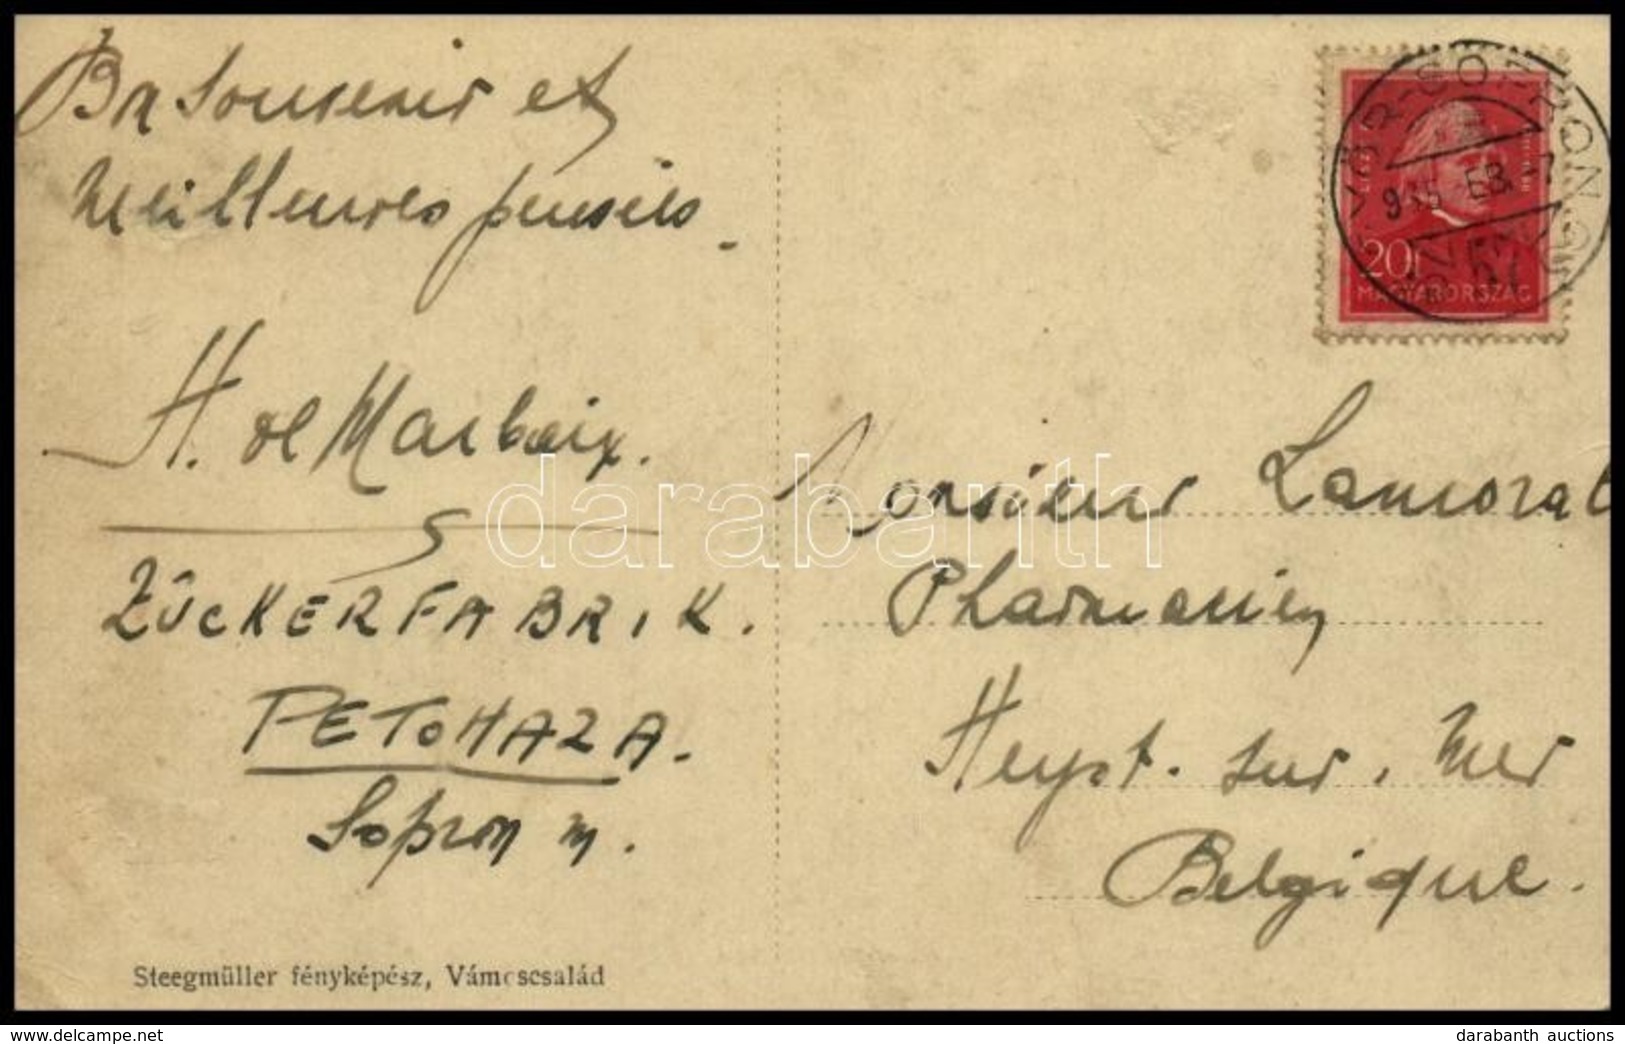 Bn Souvenir et
Meilleures pensées.
H. de Marbaix.
ZÛCKERFABRIK.
PETOHAZA.
Sopron m.
Steegmüller fényképész, Vámoscsalád
GYŐR-SOPRON
935 FEB. -7
20f
MAGYARORSZÁG
Monsieur Lamoral
Pharmacien
Heyst. sur. Mer
Belgique.
darabanth
www.delcampe.net
darabanth auctions